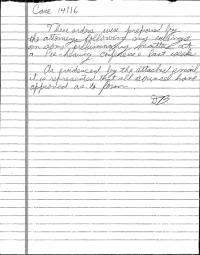 Case 14116
These orders were prepared by
the attorneys following my rulings
on some preliminary matters at
a Pre-hearing conference last week
As evidenced by the attached email
it is represented that all counsel have
approved as to form.